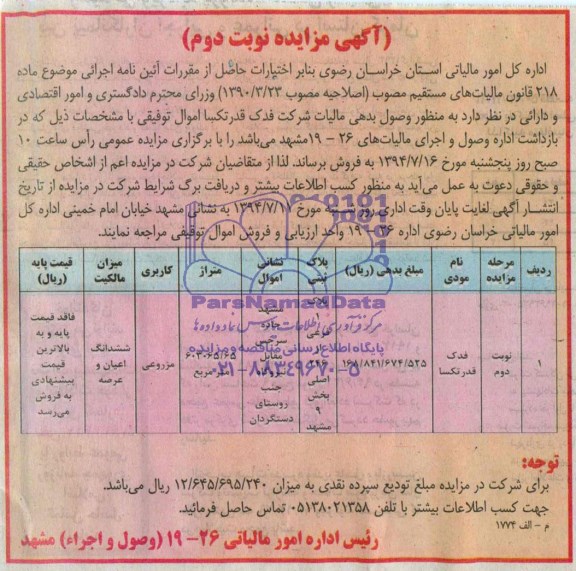 (آگهی مزایده نوبت دوم)
اداره کل امور مالیاتی استان خراسان رضوی بنابر اختیارات حاصل از مقررات آئین نامه اجرائی موضوع ماده
۲۱۸ قانون مالیات‌های مستقیم مصوب (اصلاحیه مصوب ۱۳۹۰/۳/۲۳) وزرای محترم دادگستری و امور اقتصادی
و دارائی در نظر دارد به منظور وصول بدهی مالیات شرکت فدک قدرتکسا اموال توقیفی با مشخصات ذیل که در
بازداشت اداره وصول و اجرای مالیات‌های ۲۶ – ۱۹مشهد می‌باشد را با برگزاری مزایده عمومی رأس ساعت ۱۰
صبح روز پنجشنبه مورخ ۱۳۹۴/۷/۱۶ به فروش برساند. لذا از متقاضیان شرکت در مزایده اعم از اشخاص حقیقی
و حقوقی دعوت به عمل می‌آید به منظور کسب اطلاعات بیشتر و دریافت برگ شرایط شرکت در مزایده از تاریخ
انتشار آگهی لغایت پایان وقت اداری روز شنبه مورخ ۱۳۹۴/۷/۱۱ به نشانی مشهد خیابان امام خمینی اداره کل
امور مالیاتی خراسان رضوی اداره ۲۶–۱۹ واحد ارزیابی و فروش اموال توقیفی مراجعه نمایند.
ردیف مرحله مزایده نام مودی مبلغ بدهی (ریال) پلاک ثبتی نشانی اموال متراژ کاربری میزان مالکیت قیمت پایه (ریال)
۱ نوبت دوم فدک قدرتکسا ۱۶۸/۸۴۱/۶۷۴/۵۲۵ پلاک فرعی از اصلی بخش ۹ مشهد مشهد جاده سرخس مقابل نیروگاه جنب روستای دستگردان ۶۰۳۰۶۵/۶۵ متر مربع مزروعی ششدانگ اعیان و عرصه فاقد قیمت پایه و به بالاترین قیمت پیشنهادی به فروش می‌رسد
ParsNamadData
مرکز فرآوری اطلاعات پارس نماد داده‌ها
پایگاه اطلاع رسانی مناقصه و مزایده
۰۲۱-۸۸۳۴۹۶۷۰-۵
توجه:
برای شرکت در مزایده مبلغ تودیع سپرده نقدی به میزان ۱۲/۶۴۵/۶۹۵/۲۴۰ ریال می‌باشد.
جهت کسب اطلاعات بیشتر با تلفن ۰۵۱۳۸۰۲۱۳۵۸ تماس حاصل فرمائید.
م – الف ۱۷۷۴
رئیس اداره امور مالیاتی ۲۶– ۱۹ (وصول و اجراء) مشهد